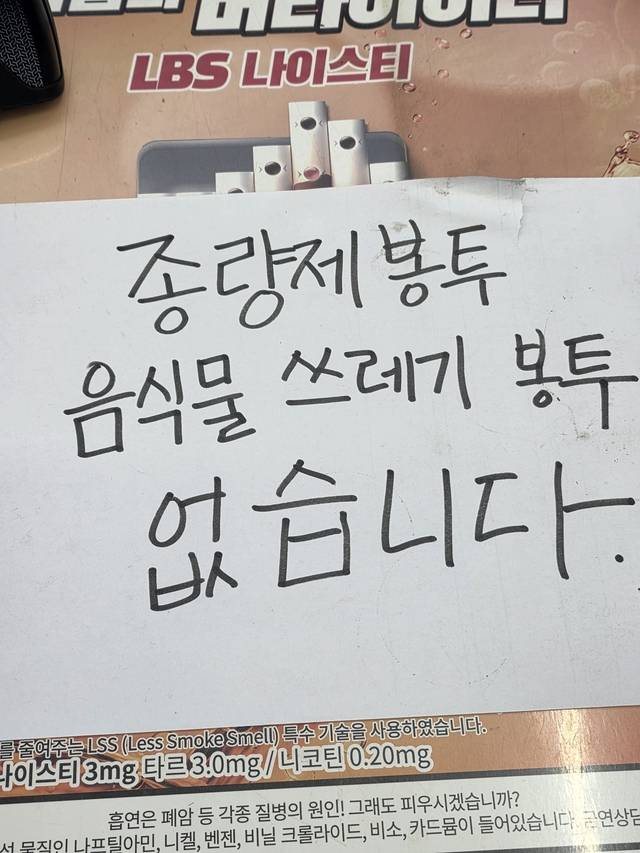 버라이어티
LBS 나이스티
종량제 봉투
음식물 쓰레기 봉투
없습니다.
를 줄여주는 LSS (Less Smoke Smell) 특수 기술을 사용하였습니다.
나이스티 3mg 타르 3.0mg / 니코틴 0.20mg
흡연은 폐암 등 각종 질병의 원인! 그래도 피우시겠습니까?
물질인 나프틸아민, 니켈, 벤젠, 비닐 크롤라이드, 비소, 카드뮴이 들어있습니다. 금연상담